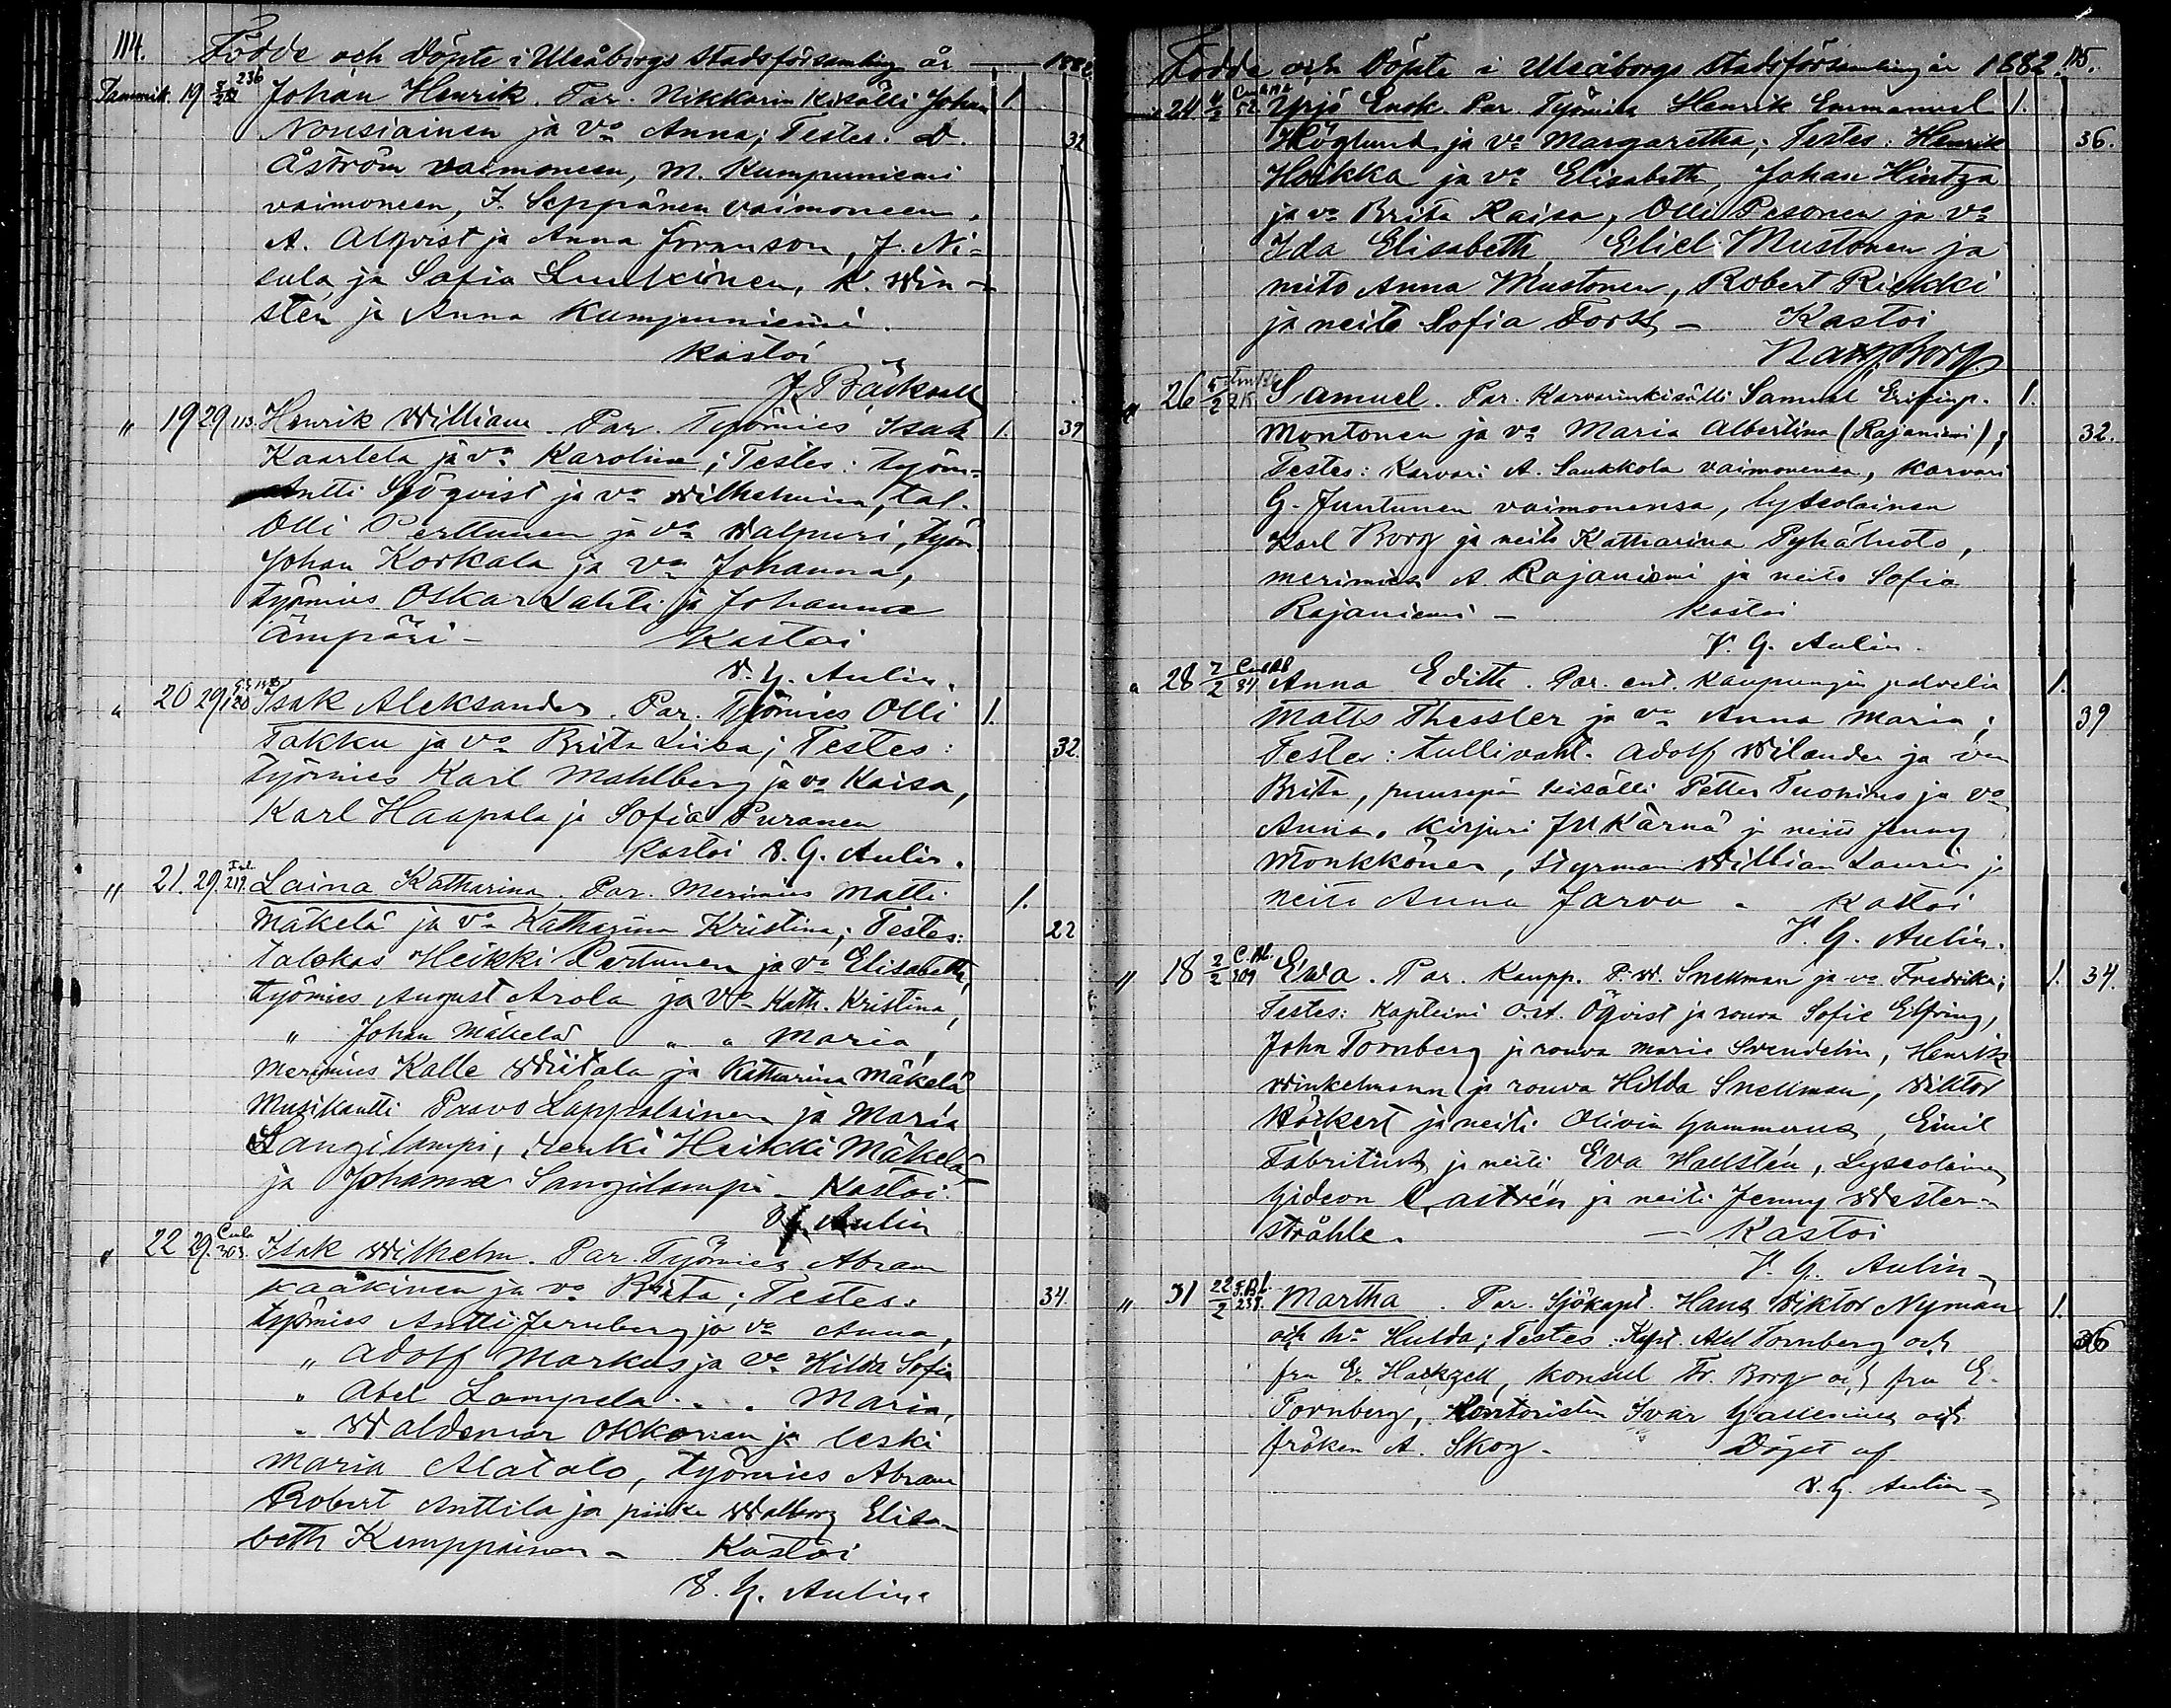 114. Födde och Döpte i Uleåborgs Stadsförsamling år — 1882
Tammik. 19 236 Johan Henrik. Par. Nikkarin Kisälli Johan 1.
Nousiainen ja vo Anna; Testes: D. 32
Åström vaimoneen, M. Kumpuniemi
vaimoneen, J. Seppänen vaimoneen,
A. Alqvist ja Anna, J. Ni-
sula ja Sofia, K. Win-
stén ja Anna Kumpuniemi.
Kastoi
J. Bäckvall
" 19 29 113. Henrik William. Par. Työmies Isak 1. 39
Kaarlela ja vo Karolina; Testes: työm.
Antti Sjöqvist ja vo Wilhelmina, tal.
Olli Perttunen ja vo Walpuri, työm.
Johan Korkala ja vo Johanna,
työmies Oskar Lahti ja Johanna
Ämpäri – Kastoi
V. G. Aulin.
" 20 29 120 Isak Aleksander. Par. Työmies Olli 1.
Takku ja vo Brita Liisa; Testes: 32.
työmies Karl Mahlberg ja vo Kaisa,
Karl Haapala ja Sofia Puranen
Kastoi V. G. Aulin.
" 21. 29. 219. Laina Katharina. Par. Merimies Matti 1.
Mäkelä ja vo Katharina Kristina; Testes: 22
talokas Heikki Pertunen ja vo Elisabeth,
työmies August Arola ja vo Kath. Kristina,
" Johan Mäkelä " " Maria,
Merimies Kalle Wiitala ja Katharina Mäkelä
Musikantti Paavo Lappalainen ja Maria
Sangilampi, Renki Heikki Mäkelä
ja Johanna Sangilampi – Kastoi.
V. G. Aulin
" 22 29. 303. Isak Wilhelm. Par. Työmies Abram
Kaakinen ja vo Brita; Testes: 34.
työmies Antti Jernberg ja vo Anna,
" Adolf Markus ja vo Hilda Sofia
" Abel Lampela " " Maria,
" Waldemar Okkonen ja leski
Maria Alatalo, työmies Abram
Robert Anttila ja piika Walborg Elisa-
beth Kemppainen – Kastoi
V. G. Aulin.
Födde och Döpte i Uleåborgs Stadsförsamling år 1882. 115.
" 24 52 Yrjö Enok. Par. Työmies Henrik Emmanuel 1.
Höglund ja vo Margaretha; Testes: Henrik 36.
Hoikka ja vo Elisabeth, Johan Hintza
ja vo Brita Kaisa, Olli Pesonen ja vo
Ida Elisabeth, Eliel Mustonen ja
neito Anna Mustonen, Robert Riekki
ja neito Sofia Forss – Kastoi
" 26 5/2 215 Samuel. Par. Karvarinkisälli Samuel 1.
Montonen ja vo Maria Albertina (Rajaniemi); 32.
Testes: Karvari A. Saukkola vaimonensa, karvari
G. Juntunen vaimonensa, lyseolainen
Karl Borg ja neito Katharina Pyhäluoto,
merimies A. Rajaniemi ja neito Sofia
Rajaniemi – Kastoi
V. G. Aulin.
" 28 7/2 34 Anna Edith. Par. ent. kaupungin palvelia 1.
Matts Thessler ja vo Anna Maria; 39
Testes: tullivaht. Adolf Wilander ja vo
Brita, puusepän kisälli Petter Tuomins ja vo
Anna, Kirjuri J M Kärnä ja neiti Jenny
Mönkkönen, Styrman William Laurin ja
neiti Anna Jarva – Kastoi
V. G. Aulin.
" 18 2/2 309 Ewa. Par. Kaupp. P. W. Snellman ja vo Fredrika; 1. 34.
Testes: Kapteini O. A. Öqvist ja rouva Sofie Elfving,
John Tornberg ja rouva Maria Svendelin, Henrik
Winkelmann ja rouva Hilda Snellman, Wiktor
Höckert ja neiti Olivia Gummerus, Emil
Fabritius ja neiti Eva Hallstén, Lyseolainen
Gideon Castrén ja neiti Jenny Wester-
stråhle. — Kastoi
V. G. Aulin
" 31 22/2 238. Martha. Par. Sjökapt. Hans Wiktor Nyman 1.
och ho Hulda; Testes: Kapt. Axel Tornberg och 36
fru E. Hackzell, Konsul Fr. Borg och fru E.
Tornberg, Kontoristen Ivar Gallenius och
fröken A. Skog. – Döpt af
V. G. Aulin